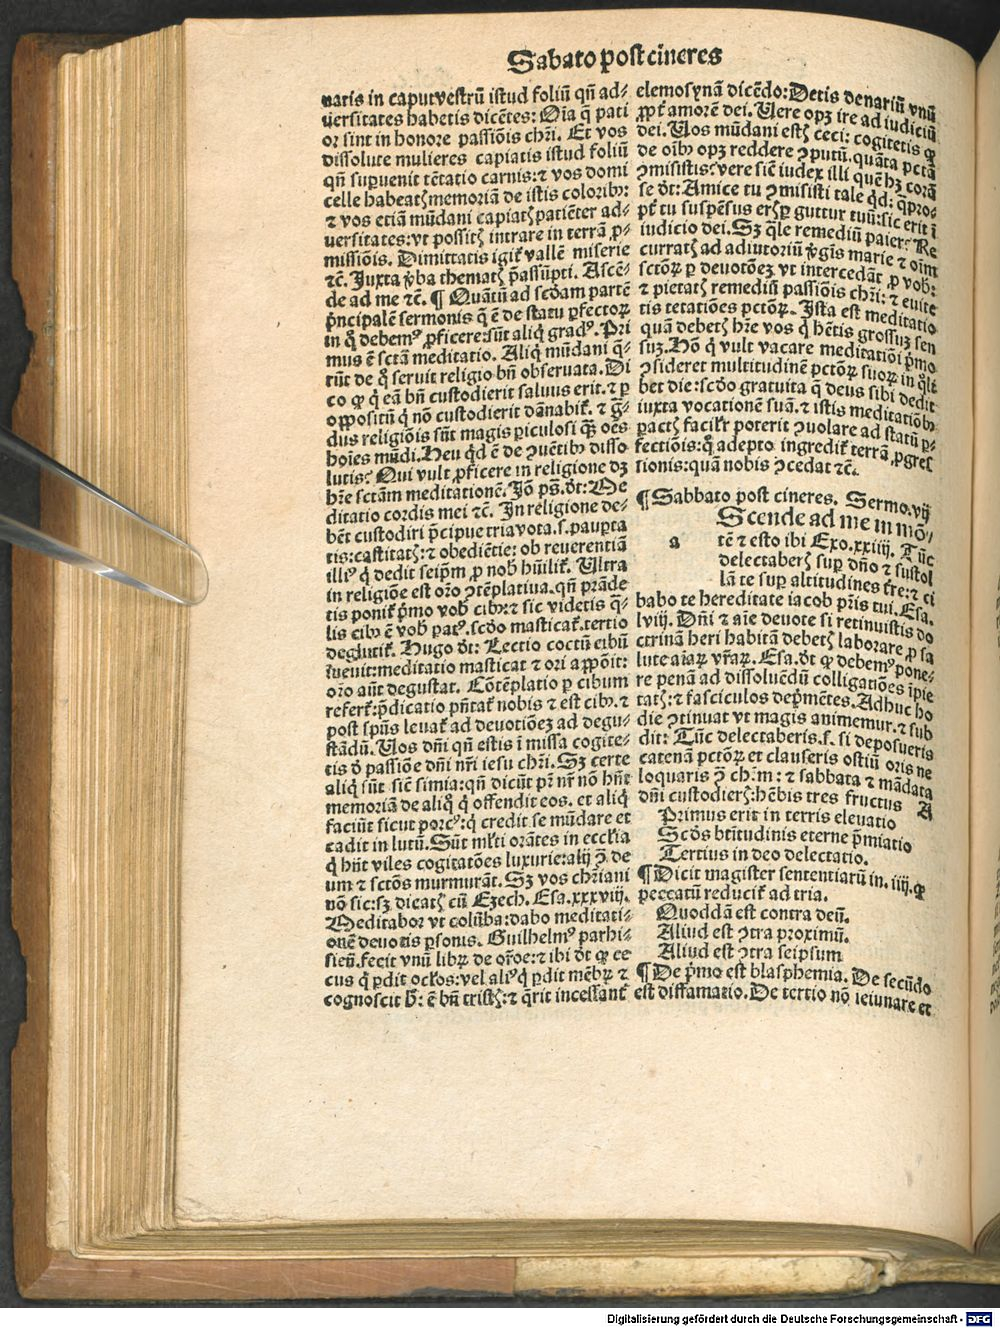 Sabato post cineres
naris in caput vestrū istud foliū qn̄ ad⸗
uersitates habetis dicētes: Oīa q̄ pati
or sint in honore passiōis chri. Et vos
dissolute mulieres capiatis istud foliū
qn̄ supuenit tētatio carnis: ⁊ vos domi
celle habeatꝭ memoriā de istis coloribꝰ:
⁊ vos etiā mūdani capiatꝭ patiēter ad⸗
uersitates: vt possitꝭ intrare in terrā ꝓ⸗
missiōis. Dimittatis igit̄ vallē miserie
⁊c̄. Juxta ꝟba thematꝭ p̄assūpti. Ascē⸗
de ad me ⁊c̄. ¶ Quātū ad scd̓am partē
pͥncipalē sermonis q̄ ē de statu ꝑfectoꝝ
in qͦ debemꝰ ꝓficere: sūt aliqͥ gradꝰ. Pri
mus ē sctām meditatio. Aliqͥ mūdani q̄⸗
rūt de qͦ seruit religio bn̄ obseruata. Di
co ꝙ qͥ eā bn̄ custodierit saluus erit. ⁊ ꝑ
oppositū qͥ nō custodierit dānabit̄. ⁊ gͣ⸗
dus religiōis sūt magis ꝑiculosi qͣꝫ oēs
hoīes mūdi. Heu qͥd ē de ꝯuētibꝰ disso
lutis? Qui vult ꝓficere in religione dꝫ
hr̄e sctām meditationē. Jō pꝰ. dt̄: Me
ditatio cordis mei ⁊c̄. In religione de⸗
bēt custodiri p̄cipue tria vota. s. paupta
tis: castitatꝭ: ⁊ obediētie: ob reuerentiā
illiꝰ qͥ dedit seipm̄ ꝓ nobꝭ hūilit̄. Ultra
in religiōe est or̄o ꝯtēplatiua. qn̄ prāde
tis ponit̄ pͥmo vobꝭ cibꝰ: ⁊ sic videtis q̄⸗
lis cibꝰ ē vobꝭ patꝰ. scd̓o masticat̄. tertio
deglutit̄. Hugo dt̄: Lectio coctū cibū
īuenit: meditatio masticat ⁊ ori apponit:
or̄o aūt degustat. Cōtēplatio ꝑ cibum
refert̄: p̄dicatio pn̄tat̄ nobis ⁊ est cibꝰ. ⁊
post spūs leuat̄ ad deuotiōeꝫ ad degu⸗
stādū. Uos dn̄i qn̄ estis ī missa cogite⸗
tis d̓ passiōe dn̄i nr̄i iesu chri. Sꝫ certe
aliqͥ sūt siē simia: qn̄ dicūt pr̄ nr̄ nō hn̄t
memoriā de aliqͦ qͥ offendit eos. et aliqͥ
faciūt sicut porcꝰ: qͥ credit se mūdare et
cadit in lutū. Sūt ml̄ti orātes in eccl̄ia
qͥ hn̄t viles cogitatōes luxurie: alij ꝯͣ de
um ⁊ sctōs murmurāt. Sꝫ vos chr̄iani
nō sic: sꝫ dicatꝭ cū Ezech. Esa. xxxviij.
Meditabor vt colūba: dabo meditati⸗
onē deuotis ꝑsonis. Guilhelmꝰ parhi⸗
sien̄. fecit vnū libꝝ de or̄oe: ⁊ ibi dt̄ ꝙ ce
cus qͥ ꝑdit ocl̄os: vel aliꝰ qͥ ꝑdit mēbꝝ ⁊
cognoscit hͦ: ē bn̄ tristꝭ: ⁊ q̄rit incessant̄
elemosynā dicēdo: Detis denariū vnū
ꝓpt̄ amorē dei. Uere opꝫ ire ad iudiciū
dei. Uos mūdani estꝭ ceci: cogitetis ꝙ
de oībꝰ opꝫ reddere ꝯputū. quāta pctā
ꝯmisistis: vere siē iudex illi quē hꝫ corā
se dt̄: Amice tu ꝯmisisti tale qͥd: q̄pro⸗
pt̄ tu suspēsus eris ꝑ guttur tuū: sic erit ī
iudicio dei. Sꝫ q̄le remediū pater? Re
curratꝭ ad adiutoriū ꝟgīs marie ⁊ oīm
sctōꝝ ꝑ deuotōeꝫ vt intercedāt ꝓ vobꝭ:
⁊ pietatꝭ remediū passiōis chri: ⁊ euite
tis tētatiōes pctōꝝ. Ista est meditatio
quā debetꝭ hr̄e vos qͥ hētis grossuꝫ sen
suꝫ. Hō qͥ vult vacare meditatiōi pͥmo
ꝯsideret multitudinē pctōꝝ suoꝝ in qͦlꝫ
bet die: scd̓o gratuita q̄ deus sibi dedit
iuxta vocationē suā. ⁊ istis meditatiōibꝰ
ꝑactꝭ facilꝭ poterit ꝯuolare ad statū ꝑ⸗
fectiōis: qͦ adepto ingredit̄ terrā ꝓgres
sionis: quā nobis ꝯcedat ⁊c̄.
¶ Sabbato post cineres. Sermo. vij
a
Scende ad me in mō⸗
tē ⁊ esto ibi Exo. xxiiij. Tūc
delectaberꝭ suꝑ dn̄o ⁊ sustol
lā te suꝑ altitudines tr̄e: ⁊ ci
babo te hereditate iacob pr̄is tui. Esa.
lviij. Dn̄i ⁊ aīe deuote si retinuistis do
ctrinā heri habitā debetꝭ laborare ꝓ sa
lute aīaꝝ vr̄aꝝ. Esa. dt̄ ꝙ debemꝰ pone⸗
re penā ad dissoluēdū colligatiōes īpie
tatꝭ: ⁊ fasciculos dep̄mētes. Adhuc ho
die ꝯtinuat vt magis animemur. ⁊ sub
dit: Tūc delectaberis. s. si deposueris
catenā pctōꝝ et clauseris ostiū oris ne
loquaris ꝯͣ chr̄m: ⁊ sabbata ⁊ mādata
dn̄i custodierꝭ: hēbis tres fructus A
Primus erit in terris eleuatio
Scd̓s btītudinis eterne p̄miatio
Tertius in deo delectatio.
¶ Dicit magister sententiarū in. iiij. ꝙ
peccatū reducit̄ ad tria.
Quoddā est contra deū.
Aliud est ꝯtra proximū.
Aliud est ꝯtra seipsum
¶ De pͥmo est blasphemia. De secūdo
est diffamatio. De tertio nō ieiunare et
Digitalisierung gefördert durch die Deutsche Forschungsgemeinschaft - DFG